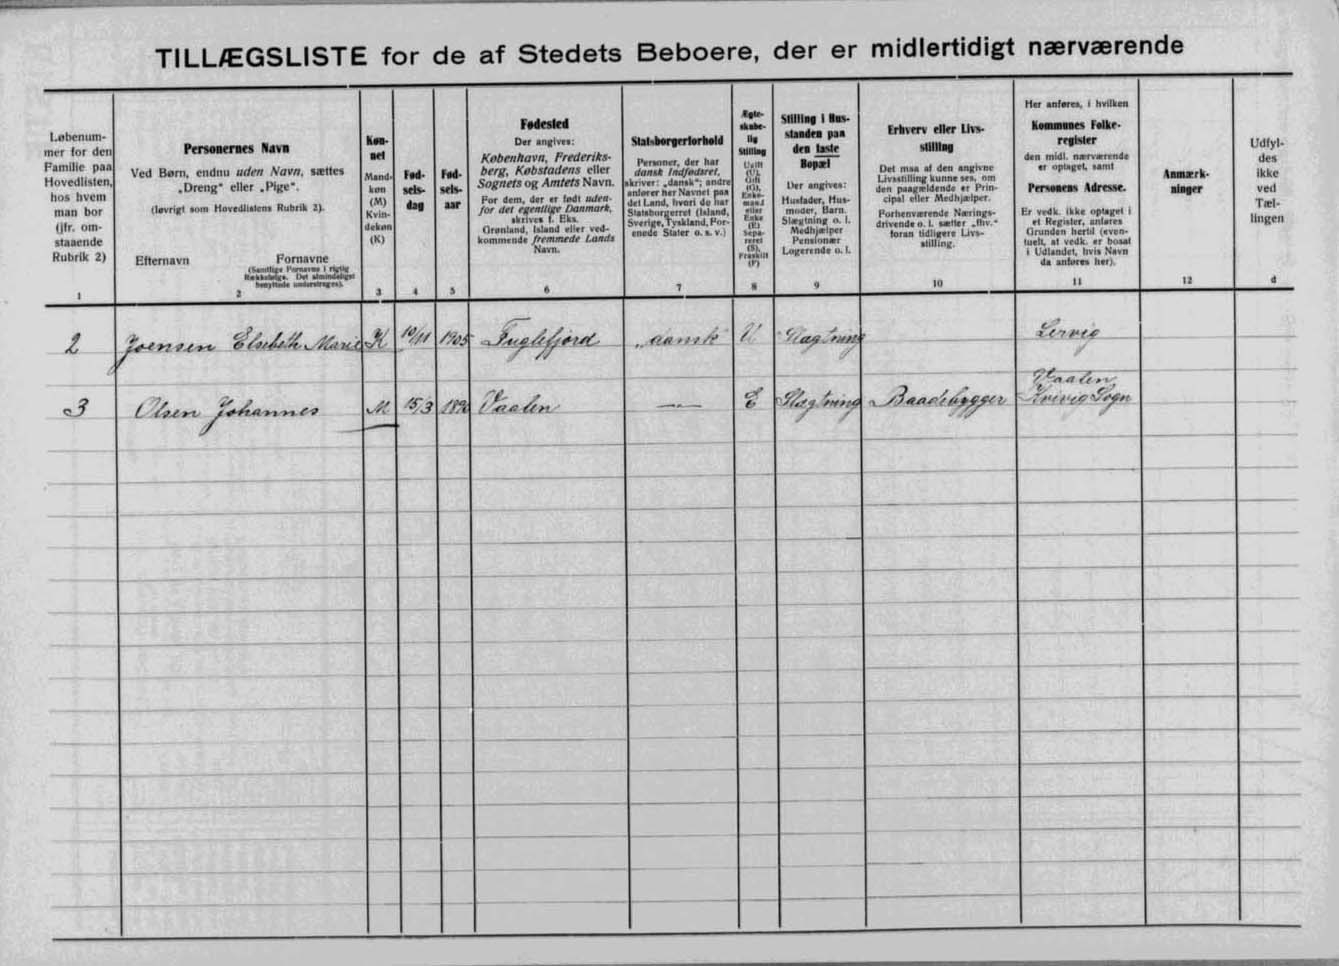 TILLÆGSLISTE for de af Stedets Beboere, der er midlertidigt nærværende
Løbenum-
mer for den
Familie paa
Hovedlisten,
hos hvem
man bor
(jfr. om-
staaende
Rubrik 2)
1
Personernes Navn
Ved Børn, endnu uden Navn, sættes
„Dreng“ eller „Pige“.
(Iøvrigt som Hovedlistens Rubrik 2).
Efternavn
Fornavne
(Samtlige Fornavne i rigtig
Rækkefølge. Det almindeligst
benyttede understreges).
2
Køn-
net
Mand-
køn
(M)
Kvin-
dekøn
(K)
3
Fød-
sels-
dag
4
Fød-
sels-
aar
5
Fødested
Der angives:
København, Frederiks-
berg, Købstadens eller
Sognets og Amtets Navn.
For dem, der er født uden-
for det egentlige Danmark,
skrives f. Eks.
Grønland, Island eller ved-
kommende fremmede Lands
Navn.
6
Statsborgerforhold
Personer, der har
dansk Indfødsret,
skriver: „dansk“; andre
anfører her Navnet paa
det Land, hvori de har
Statsborgerret (Island,
Sverige, Tyskland, For-
enede Stater o. s. v.)
7
Ægte-
skabe-
lig
Stilling
Ugift
(U),
Gift
(G),
Enke-
mand
eller
Enke
(E)
Sepa-
reret
(S),
Fraskilt
(F)
8
Stilling i Hus-
standen paa
den faste
Bopæl
Der angives:
Husfader, Hus-
moder, Barn.
Slægtning o. l.
Medhjælper
Pensionær
Logerende o. l.
9
Erhverv eller Livs-
stilling
Det maa af den angivne
Livsstilling kunne ses, om
den paagældende er Prin-
cipal eller Medhjælper.
Forhenværende Nærings-
drivende o. l. sætter „fhv.“
foran tidligere Livs-
stilling.
10
Her anføres, i hvilken
Kommunes Folke-
register
den midl. nærværende
er optaget, samt
Personens Adresse.
Er vedk. ikke optaget i
et Register, anføres
Grunden hertil (even-
tuelt, at vedk. er bosat
i Udlandet, hvis Navn
da anføres her).
11
Anmærk-
ninger
12
Udfyl-
des
ikke
ved
Tæl-
lingen
d
2 Joensen Elsebeth Marie K 10/11 1905 Fuglefjord „dansk“ U Slægtning Lervig
Vaalen
3 Olsen Johannes M 15/3 1890 Vaalen —„— E Slægtning Baadebygger Kvivig Sogn